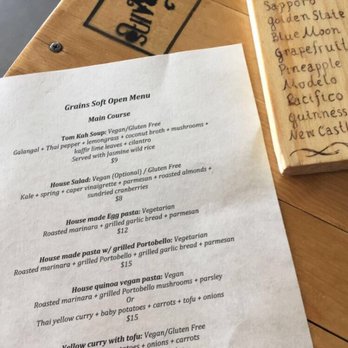 Sapporo
Golden State
Blue Moon
Grapefruit
Pineapple
Modelo
Pacifico
Guinness
New Castle
Grains Soft Open Menu
Main Course
Tom Kah Soup: Vegan/Gluten Free
Galangal + Thai pepper + lemongrass + coconut broth + mushrooms +
kaffir lime leaves + cilantro
Served with Jasmine wild rice
$9
House Salad: Vegan (Optional) / Gluten Free
Kale + spring + caper vinaigrette + parmesan + roasted almonds +
sundried cranberries
$8
House made Egg pasta: Vegetarian
Roasted marinara + grilled garlic bread + parmesan
$12
House made pasta w/ grilled Portobello: Vegetarian
Roasted marinara + grilled Portobello + grilled garlic bread + parmesan
$15
House quinoa vegan pasta: Vegan
Roasted marinara + grilled Portobello mushrooms + parsley
Or
Thai yellow curry + baby potatoes + carrots + tofu + onions
$15
Yellow curry with tofu: Vegan/Gluten Free
potatoes + onions + carrots